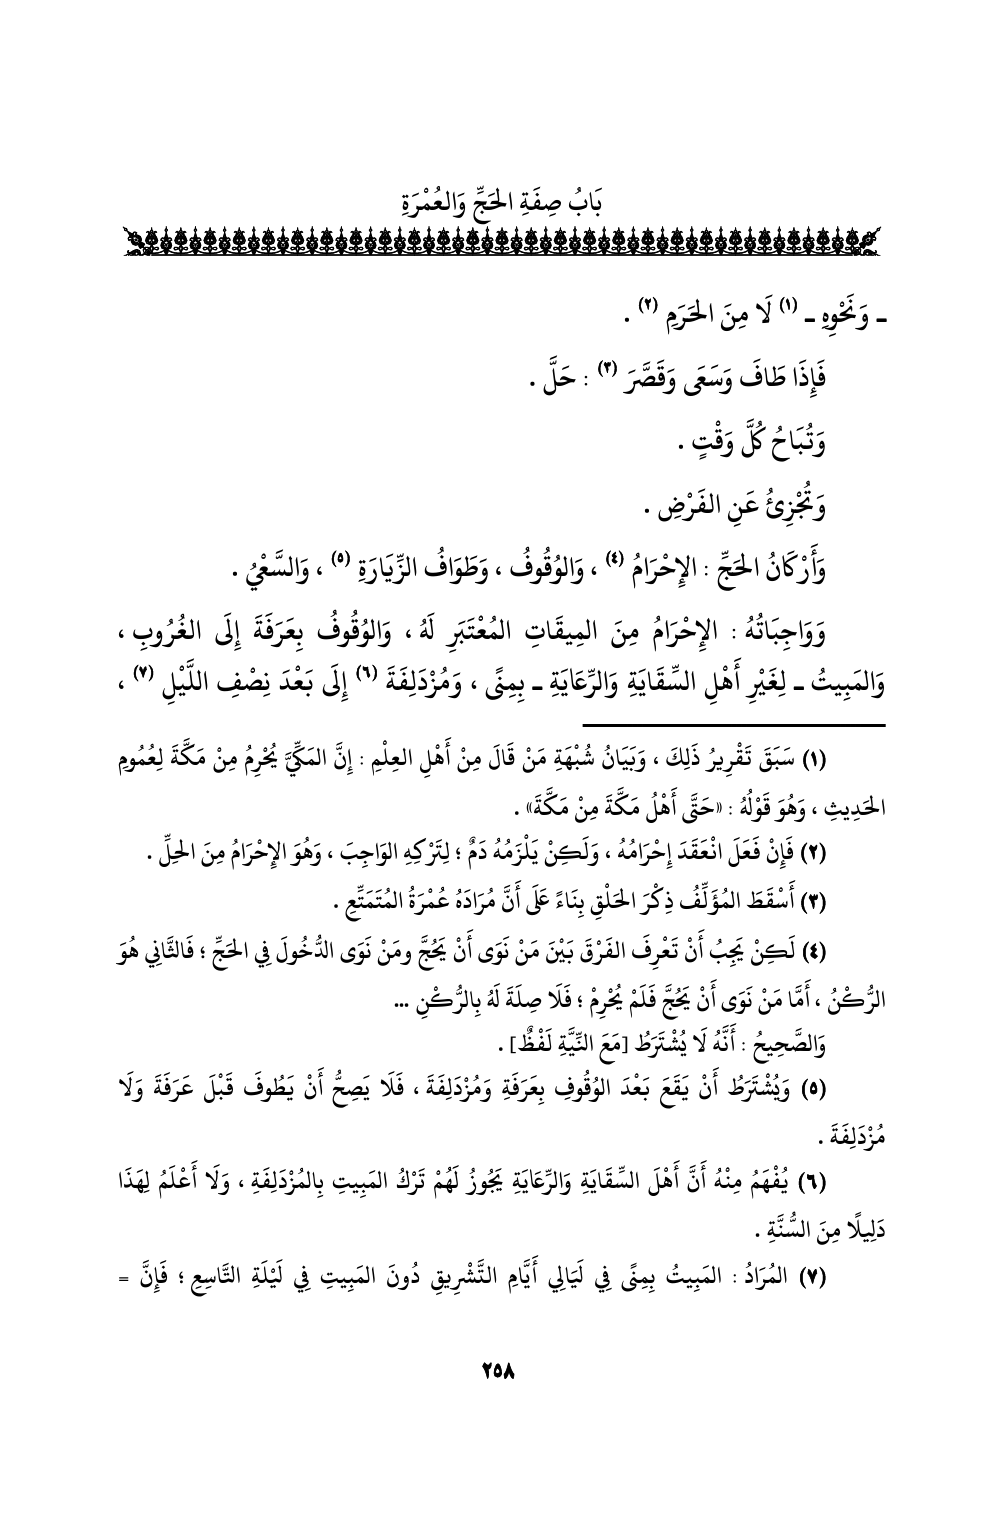 بَابُ صِفَةِ الحَجِّ وَالعُمْرَةِ
ـ وَنَحْوِهِ ـ (١) لَا مِنَ الحَرَمِ (٢) .
فَإِذَا طَافَ وَسَعَى وَقَصَّرَ (٣) : حَلَّ .
وَتُبَاحُ كُلَّ وَقْتٍ .
وَتُجْزِئُ عَنِ الفَرْضِ .
وَأَرْكَانُ الحَجِّ : الإِحْرَامُ (٤) ، وَالوُقُوفُ ، وَطَوَافُ الزِّيَارَةِ (٥) ، وَالسَّعْيُ .
وَوَاجِبَاتُهُ : الإِحْرَامُ مِنَ المِيقَاتِ المُعْتَبَرِ لَهُ ، وَالوُقُوفُ بِعَرَفَةَ إِلَى الغُرُوبِ ،
وَالمَبِيتُ ـ لِغَيْرِ أَهْلِ السِّقَايَةِ وَالرِّعَايَةِ ـ بِمِنًى ، وَمُزْدَلِفَةَ (٦) إِلَى بَعْدَ نِصْفِ اللَّيْلِ (٧) ،
(١) سَبَقَ تَقْرِيرُ ذَلِكَ ، وَبَيَانُ شُبْهَةِ مَنْ قَالَ مِنْ أَهْلِ العِلْمِ : إِنَّ المَكِّيَّ يُحْرِمُ مِنْ مَكَّةَ لِعُمُومِ
الحَدِيثِ ، وَهُوَ قَوْلُهُ : «حَتَّى أَهْلُ مَكَّةَ مِنْ مَكَّةَ» .
(٢) فَإِنْ فَعَلَ انْعَقَدَ إِحْرَامُهُ ، وَلَكِنْ يَلْزَمُهُ دَمٌ ؛ لِتَرْكِهِ الوَاجِبَ ، وَهُوَ الإِحْرَامُ مِنَ الحِلِّ .
(٣) أَسْقَطَ المُؤَلِّفُ ذِكْرَ الحَلْقِ بِنَاءً عَلَى أَنَّ مُرَادَهُ عُمْرَةُ المُتَمَتِّعِ .
(٤) لَكِنْ يَجِبُ أَنْ تَعْرِفَ الفَرْقَ بَيْنَ مَنْ نَوَى أَنْ يَحُجَّ ومَنْ نَوَى الدُّخُولَ فِي الحَجِّ ؛ فَالثَّانِي هُوَ
الرُّكْنُ ، أَمَّا مَنْ نَوَى أَنْ يَحُجَّ فَلَمْ يُحْرِمْ ؛ فَلَا صِلَةَ لَهُ بِالرُّكْنِ ...
وَالصَّحِيحُ : أَنَّهُ لَا يُشْتَرَطُ [مَعَ النِّيَّةِ لَفْظٌ] .
(٥) وَيُشْتَرَطُ أَنْ يَقَعَ بَعْدَ الوُقُوفِ بِعَرَفَةِ وَمُزْدَلِفَةَ ، فَلَا يَصِحُّ أَنْ يَطُوفَ قَبْلَ عَرَفَةَ وَلَا
مُزْدَلِفَةَ .
(٦) يُفْهَمُ مِنْهُ أَنَّ أَهْلَ السِّقَايَةِ وَالرِّعَايَةِ يَجُوزُ لَهُمْ تَرْكُ المَبِيتِ بِالمُزْدَلِفَةِ ، وَلَا أَعْلَمُ لِهَذَا
دَلِيلًا مِنَ السُّنَّةِ .
(٧) المُرَادُ : المَبِيتُ بِمِنًى فِي لَيَالِي أَيَّامِ التَّشْرِيقِ دُونَ المَبِيتِ فِي لَيْلَةِ التَّاسِعِ ؛ فَإِنَّ =
٢٥٨